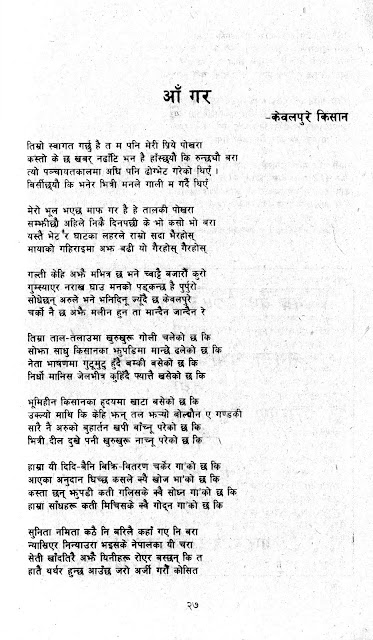 आँ गर
-केवलपुरे किसान
तिम्रो स्वागत गर्छु है त म पनि मेरी प्रिये पोखरा
कस्तो के छ खबर् नढाँटि भन है हाँस्छ्यौ कि रुन्छ्यौ बरा
त्यो पञ्चायतकालमा अघि पनि ढोग्भेट गरेको थिएँ ।
बिर्सीछ्यौ कि भनेर भित्री मनले गाली म गर्दै थिएँ
मेरो भूल भएछ माफ गर है हे तालकी पोखरा
सम्झीछौ अहिले निकै दिनपछी के भो कसो भो बरा
यस्तै भेट र घाटका लहरले राम्रो सदा भैरहोस्
मायाको गहिराइमा अझ बढी यो गैरहोस् गैरहोस्
गल्ती केहि अझै मभित्र छ भने प्वाट्टै बजारौं कुरो
गुम्स्याएर नराख घाउ मनको पड्कन्छ है पुर्पुरो
सोधेछन् अरुले भने भनिदिनू ज्यूँदै छ केवलपुरे
चर्को नै छ अझै मलीन हुन ता मान्दैन जान्दैन रे
तिम्रा ताल-तलाउमा खुरुखुरू गोली चलेको छ कि
सोझा साधु किसानका झुपडिमा मान्छे ढलेको छ कि
नेता भाषणमा गुटुमुटु हुँदै बम्की बसेको छ कि
निर्धो मानिस जेलभीत्र कुहिँदै प्यात्तै खसेको छ कि
भूमिहीन किसानका हृदयमा खाटा बसेको छ कि
उक्ल्यो माथि कि केहि झन् तल झर्‍यो बोल्द्यौन ए गण्डकी
सारै नै अरुको बुहार्तन खपी बाँच्नू परेको छ कि
भित्री दील दुखे पनी खुरुखुरू नाच्नू परेको छ कि
हाम्रा यी दिदि-बैनि बिक्रि-वितरण चर्केर गा'को छ कि
आएका अनुदान घिच्छ कसले स्वै खोज भा'को छ कि
कस्ता छन् झुपडी कती गलिसके स्वै सोध्न गा'को छ कि
हाम्रा साँधहरू कती मिचिसके स्वै गोद्न गा'को छ कि
सुनिता नमिता कठै नि बरिलै कहाँ गए नि बरा
न्यास्रिएर निन्याउरा भइसके नेपालका यी चरा
सेती खाँदतिरै अझै यिनीहरू रोएर बस्छन् कि त
हातै थर्थर हुन्छ आउँछ जरो अर्जी गरौं कोसित
२७